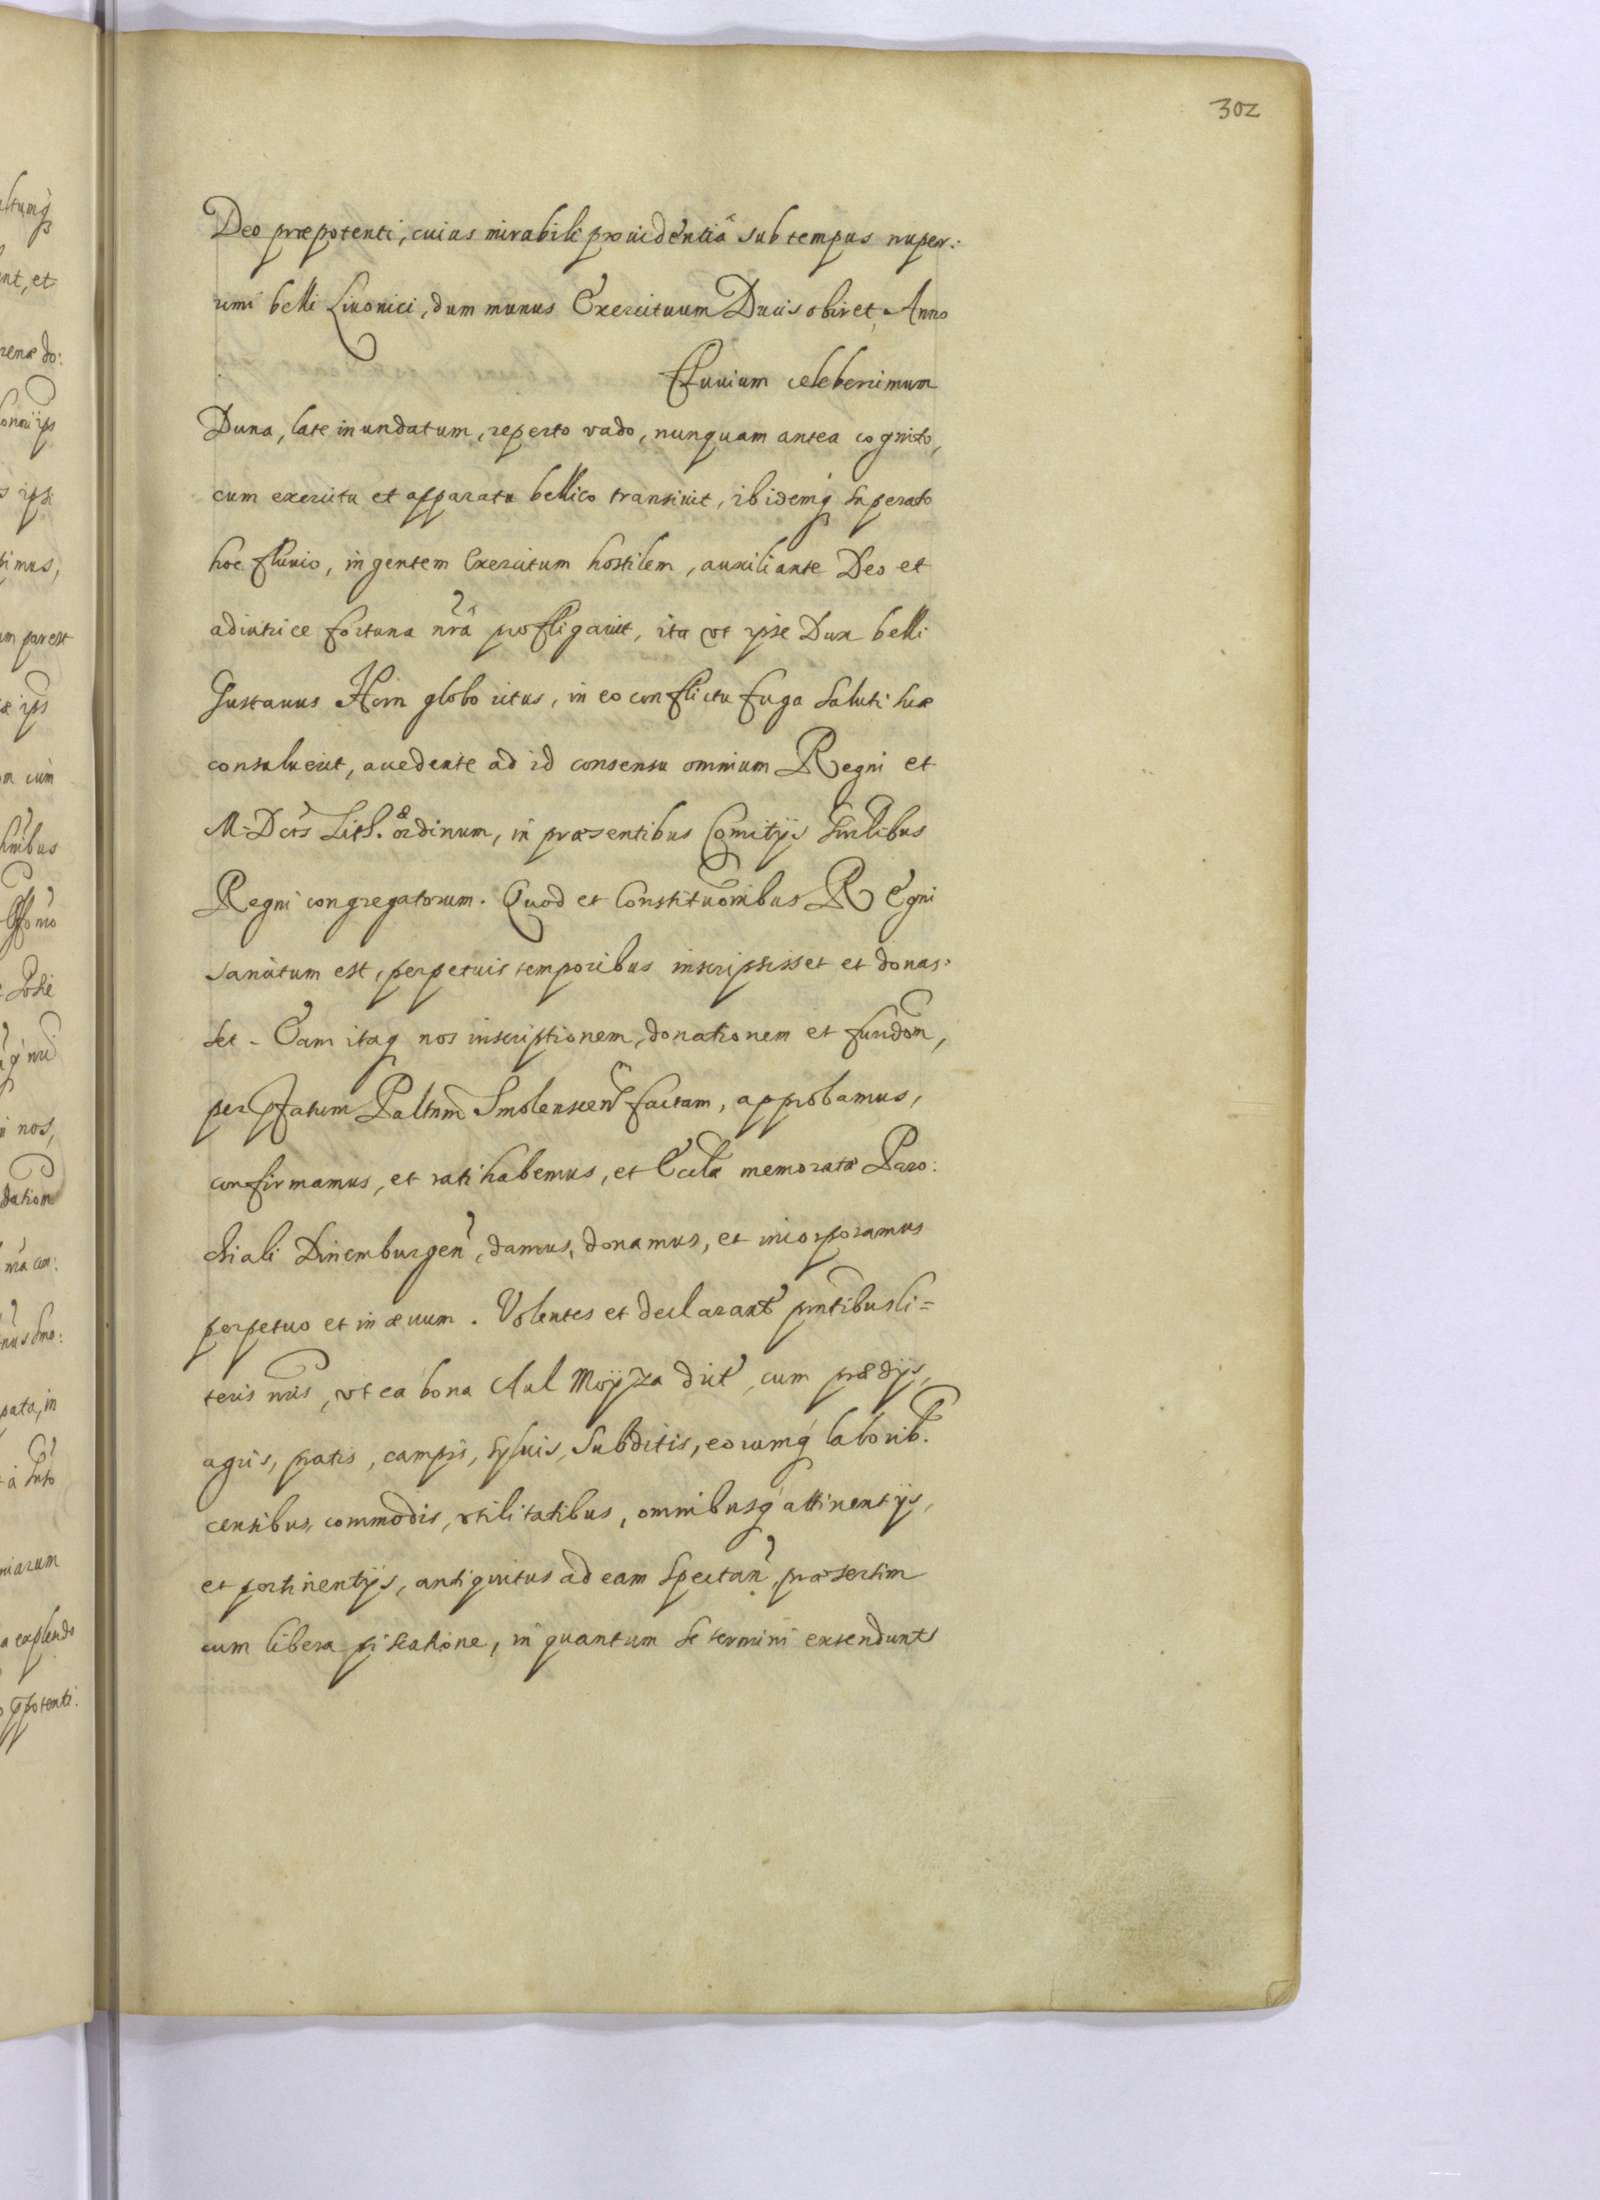 302
Deo præpotenti, cuius mirabili prouidentiâ sub tempus nuper:
rimi belli Liuonici, dum munus Exercituum Ducis obiret, Anno
Fluuium celeberrimum
Duna, late inundatum, reperto vado, nunquam antea cognito,
cum exercitu et apparatu bellico transiuit, ibidemq́ superato
hoc fluuio, ingentem Exercitum hostilem, auxiliante Deo et
adiutrice fortuna nrâ profligauit, ita vt ipse Dux belli
Gustauus Horn globo ictus, in eo conflictu fuga saluti suæ
consuluerit, accedente ad id consensu omnium Regni et
M: Dctûs Lith. ordinum, in præsentibus Comitijs
Regni congregatorum. Quod et Constituonibus Regni
sancitum est, perpetuis temporibus inscripsisset et donas:
set. Eam itaq nos inscriptionem, donationem et fundom,
per pfatum Paltnm Smolenscen factam, approbamus,
confirmamus, et ratihabemus, et Eccla memoratæ Paro:
chiali Dinemburgen, damus, donamus, et incorporamus
perpetuo et in æuum. Volentes et declarant pntibus li=
teris nris, vt ea bona Aul Moÿza dict, cum prædijs,
agris, pratis, campis, syluis, subditis, eorumq́ laborib.
censibus, commodis, vtilitatibus, omnibusq́ attinentijs,
et pertinentijs, antiquitus ad eam spectan, præsertim
cum libera piscatione, in quantum se termini extendunt